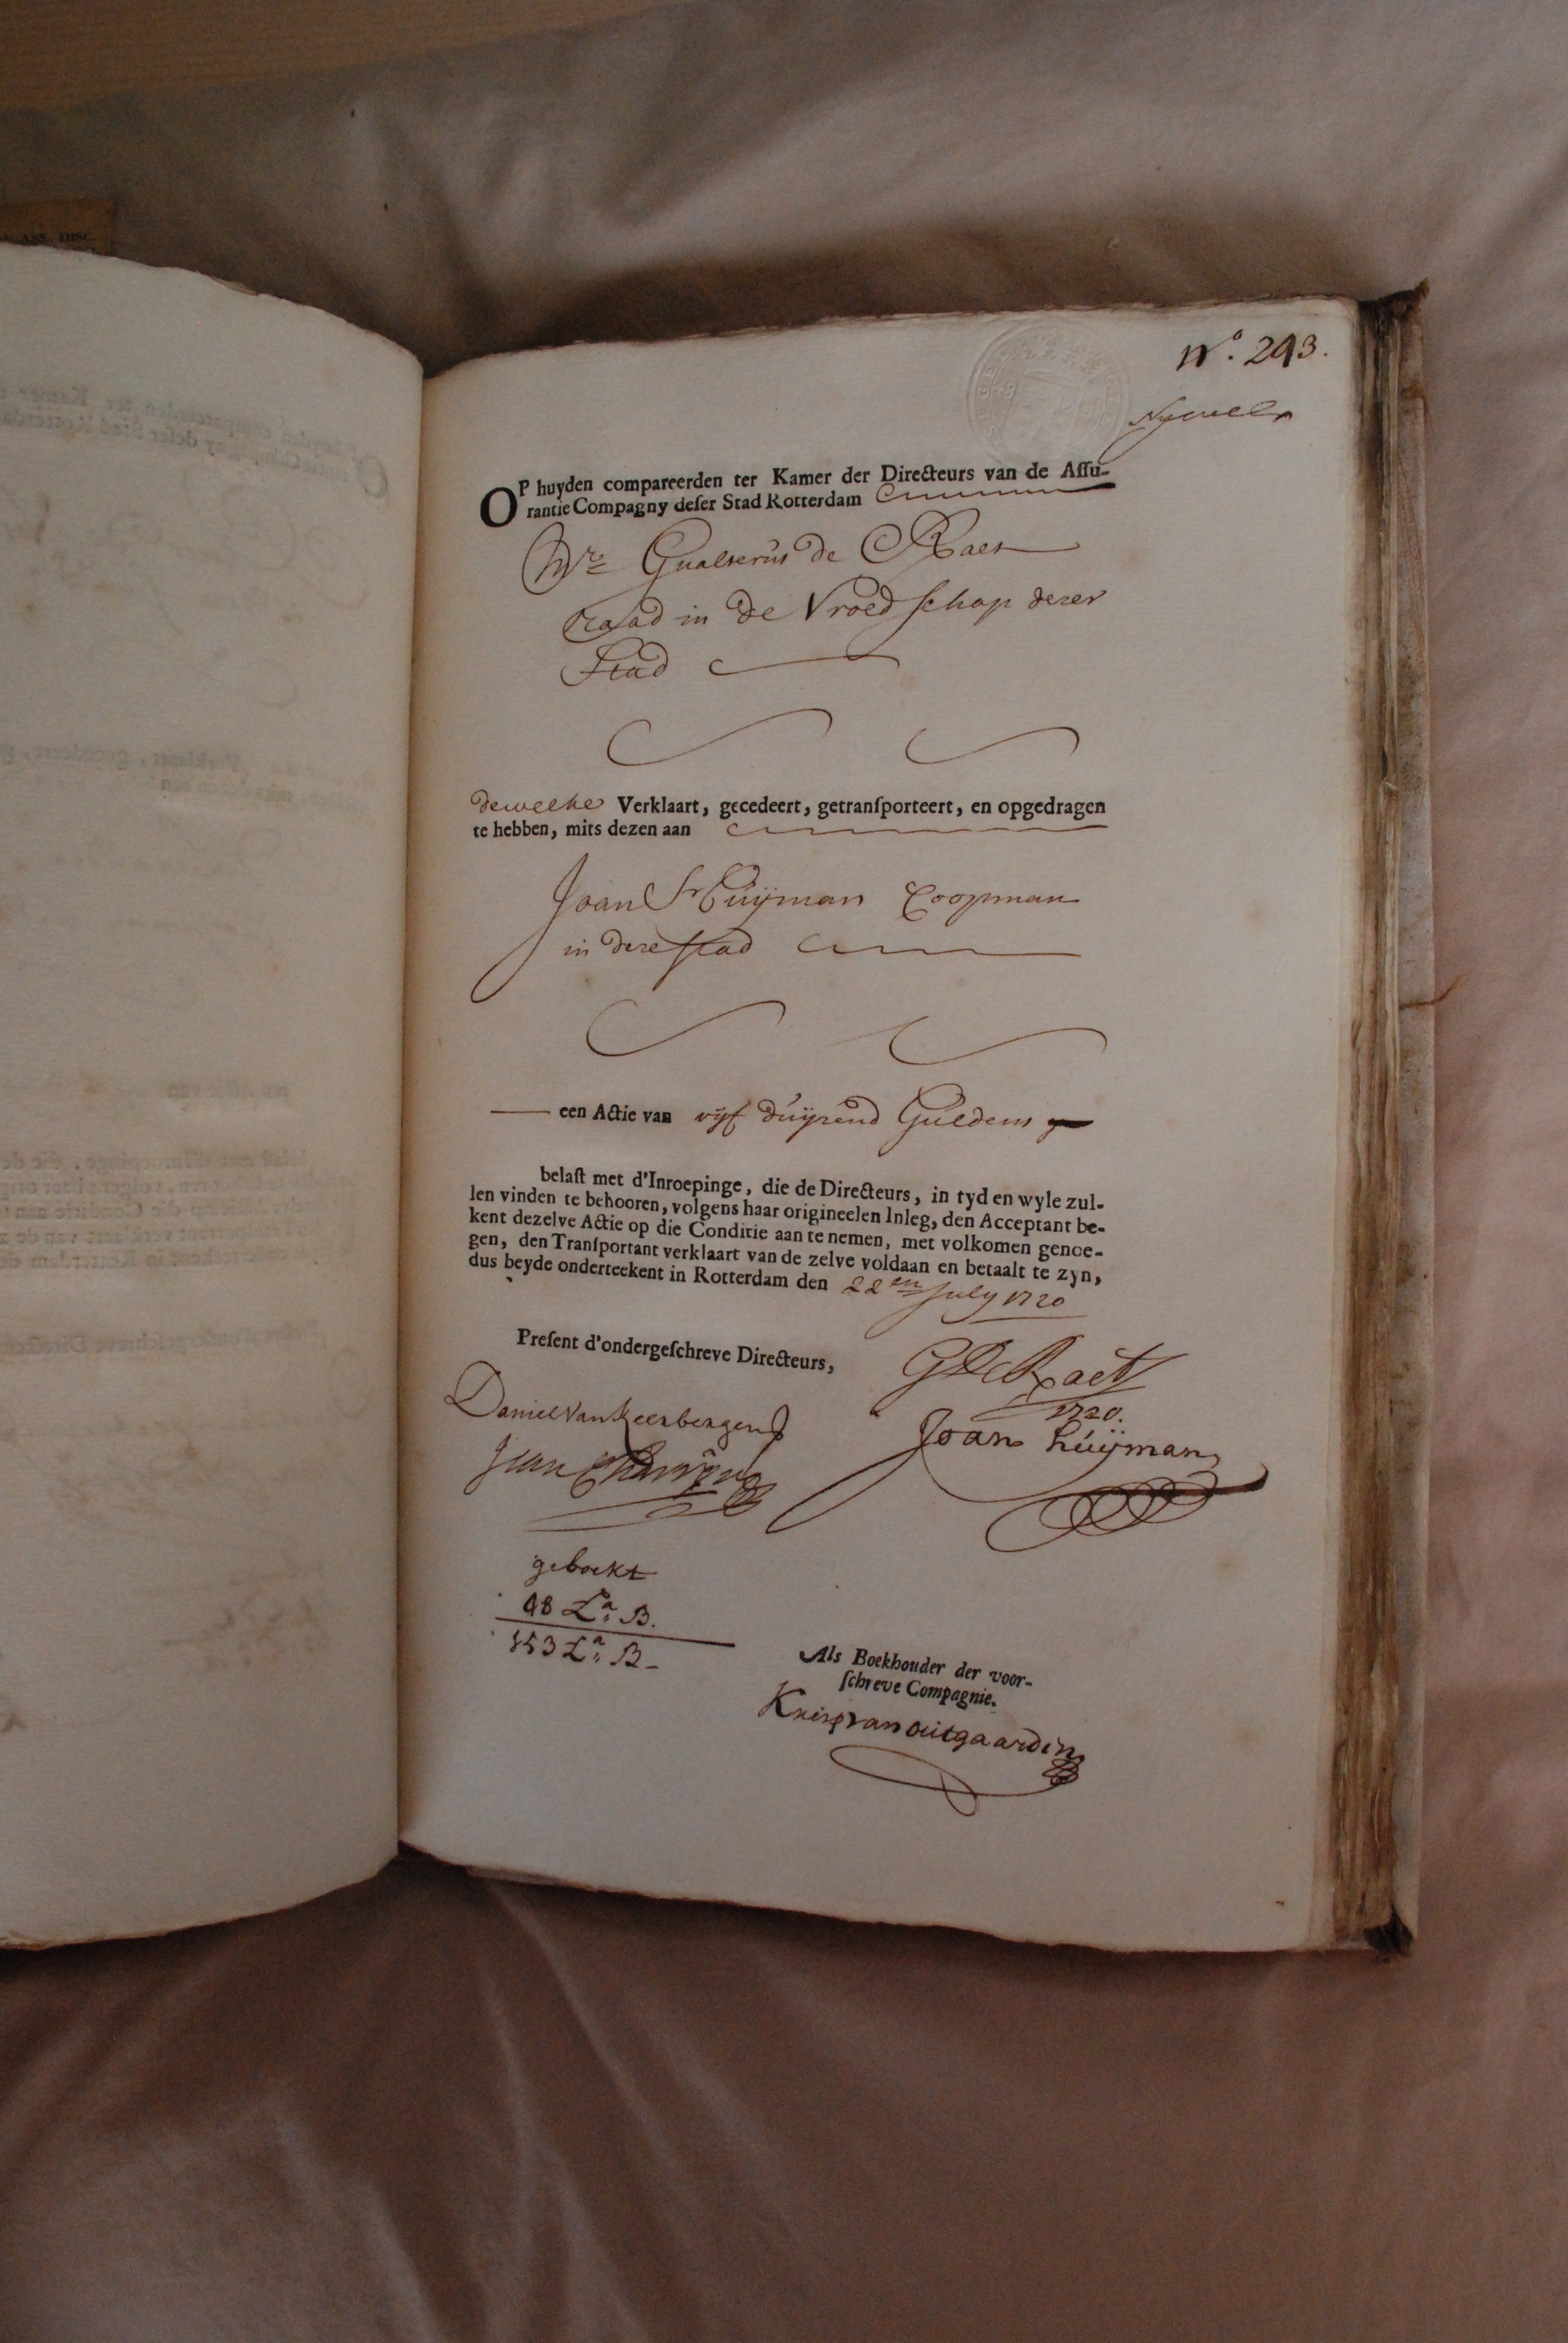 No. 293.
Nyevelt
OP huyden compareerden ter Kamer der Directeurs van de Aſſu-
rantie Compagny deſer Stad Rotterdam
Mr. Gualterus de Raet
Raad in de Vroedſchap dezer
Stad
dewelke Verklaart, gecedeert, getranſporteert, en opgedragen
te hebben, mits dezen aan
Joan Huijman Coopman
in deze ſtad
een Actie van vijf duijzend Guldens
belaſt met d'Inroepinge, die de Directeurs, in tyd en wyle zul-
len vinden te behooren, volgens haar origineelen Inleg, den Acceptant be-
kent dezelve Actie op die Conditie aan te nemen, met volkomen genoe-
gen, den Tranſportant verklaart van de zelve voldaan en betaalt te zyn,
dus beyde onderteekent in Rotterdam den 22en July 1720
Preſent d'ondergeſchreve Directeurs,
G De Raet
1720.
Daniel van Neerbergen
Joan Huijman
Jean
geboekt
98 La. B.
153 La. B
Als Boekhouder der voor-
ſchreve Compagnie.
van outgaarden
ASS. DISC.